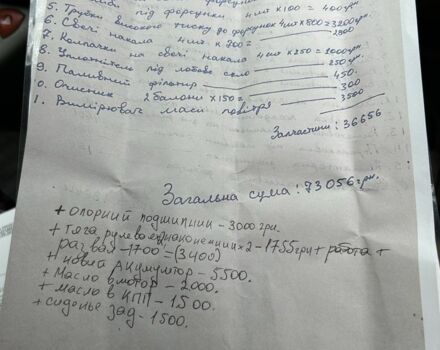 під форсунки 4шт х100 = 400грн
5. Трубки високого тиску до форсунок 4шт х800 = 3200грн.
6. Свечі накала 4шт. х 700 = 2800
7. Колпачки на свечі накала 4шт х 250 = 1000грн.
8. Уплотнітель під лобове скло 250 грн.
9. Паливний фільтр 450.
0. Очисник 2 балони х 150 = 300
1. Вимірювач маси повітря 3500
Запчастини: 36656
Загальна сума: 73056грн.
+ опорний подшипник - 3000 грн.
+ тяга, рулева х2 - 1755грн + работа +
развал - 1700 = (3400)
+ новий Акумулятор - 5500.
+ Масло в мотор - 2000.
+ масло в КПП - 1500.
+ сиденье зад - 1500.